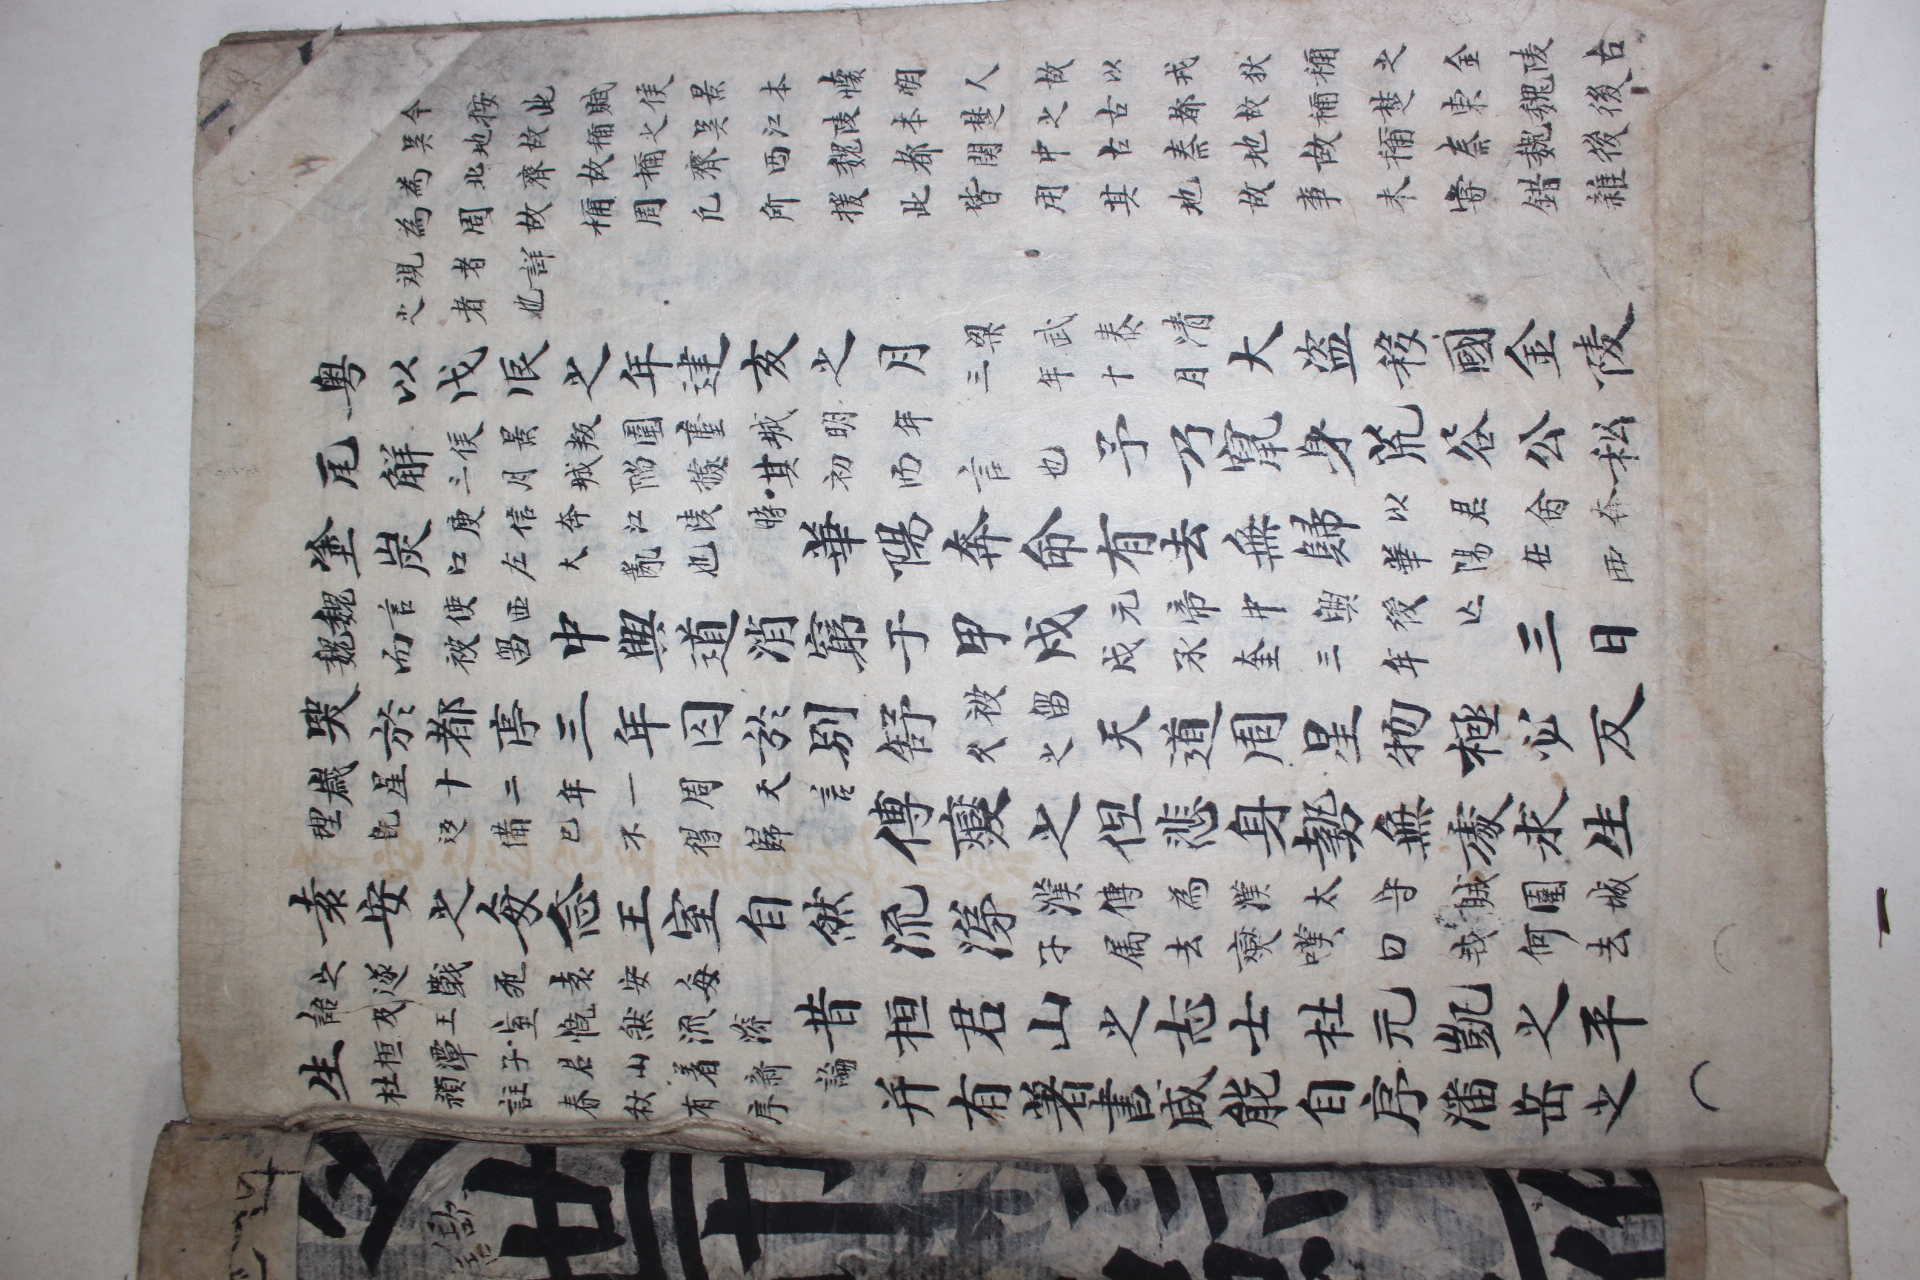 今按此賦侯景本懷明人故以戎狄稱之金陵古
吳地故稱之吳江陵本楚之古都故稱楚東魏後
為北齊故稱齊西魏都関中古秦地故稱秦魏後
為周故稱周凡所援此皆用其地故事未甞錯雜
視者詳
之者也
粤以戊辰之年建亥之月梁武泰清三年十月大盗移國金陵
尾解侯景叛圍臺城明年三月城陥據其初而言也予乃竄身荒谷公私
塗炭庾信奔江陵時江左大亂也華陽奔命有去無歸以君命奔華陽在西
魏言使西魏而被留中興道消窮于甲戌元帝中興後亡戌承奎三年三日
哭於都亭三年囚於别舒被留久之天道周星物極必反
歳星十二年一周天言理既返備已不得歸傅燮之但悲身勢無處求生
袁安之每念王室自然流涕漢傅為漢太守賊圍城子属去燮嘆曰我何去
之遂戰死袁安每語及王室慨然流涕昔桓君山之志士杜元凱之平
生桓潭子君山著新論杜預註春秋有序并有著書咸能自序潘岳之